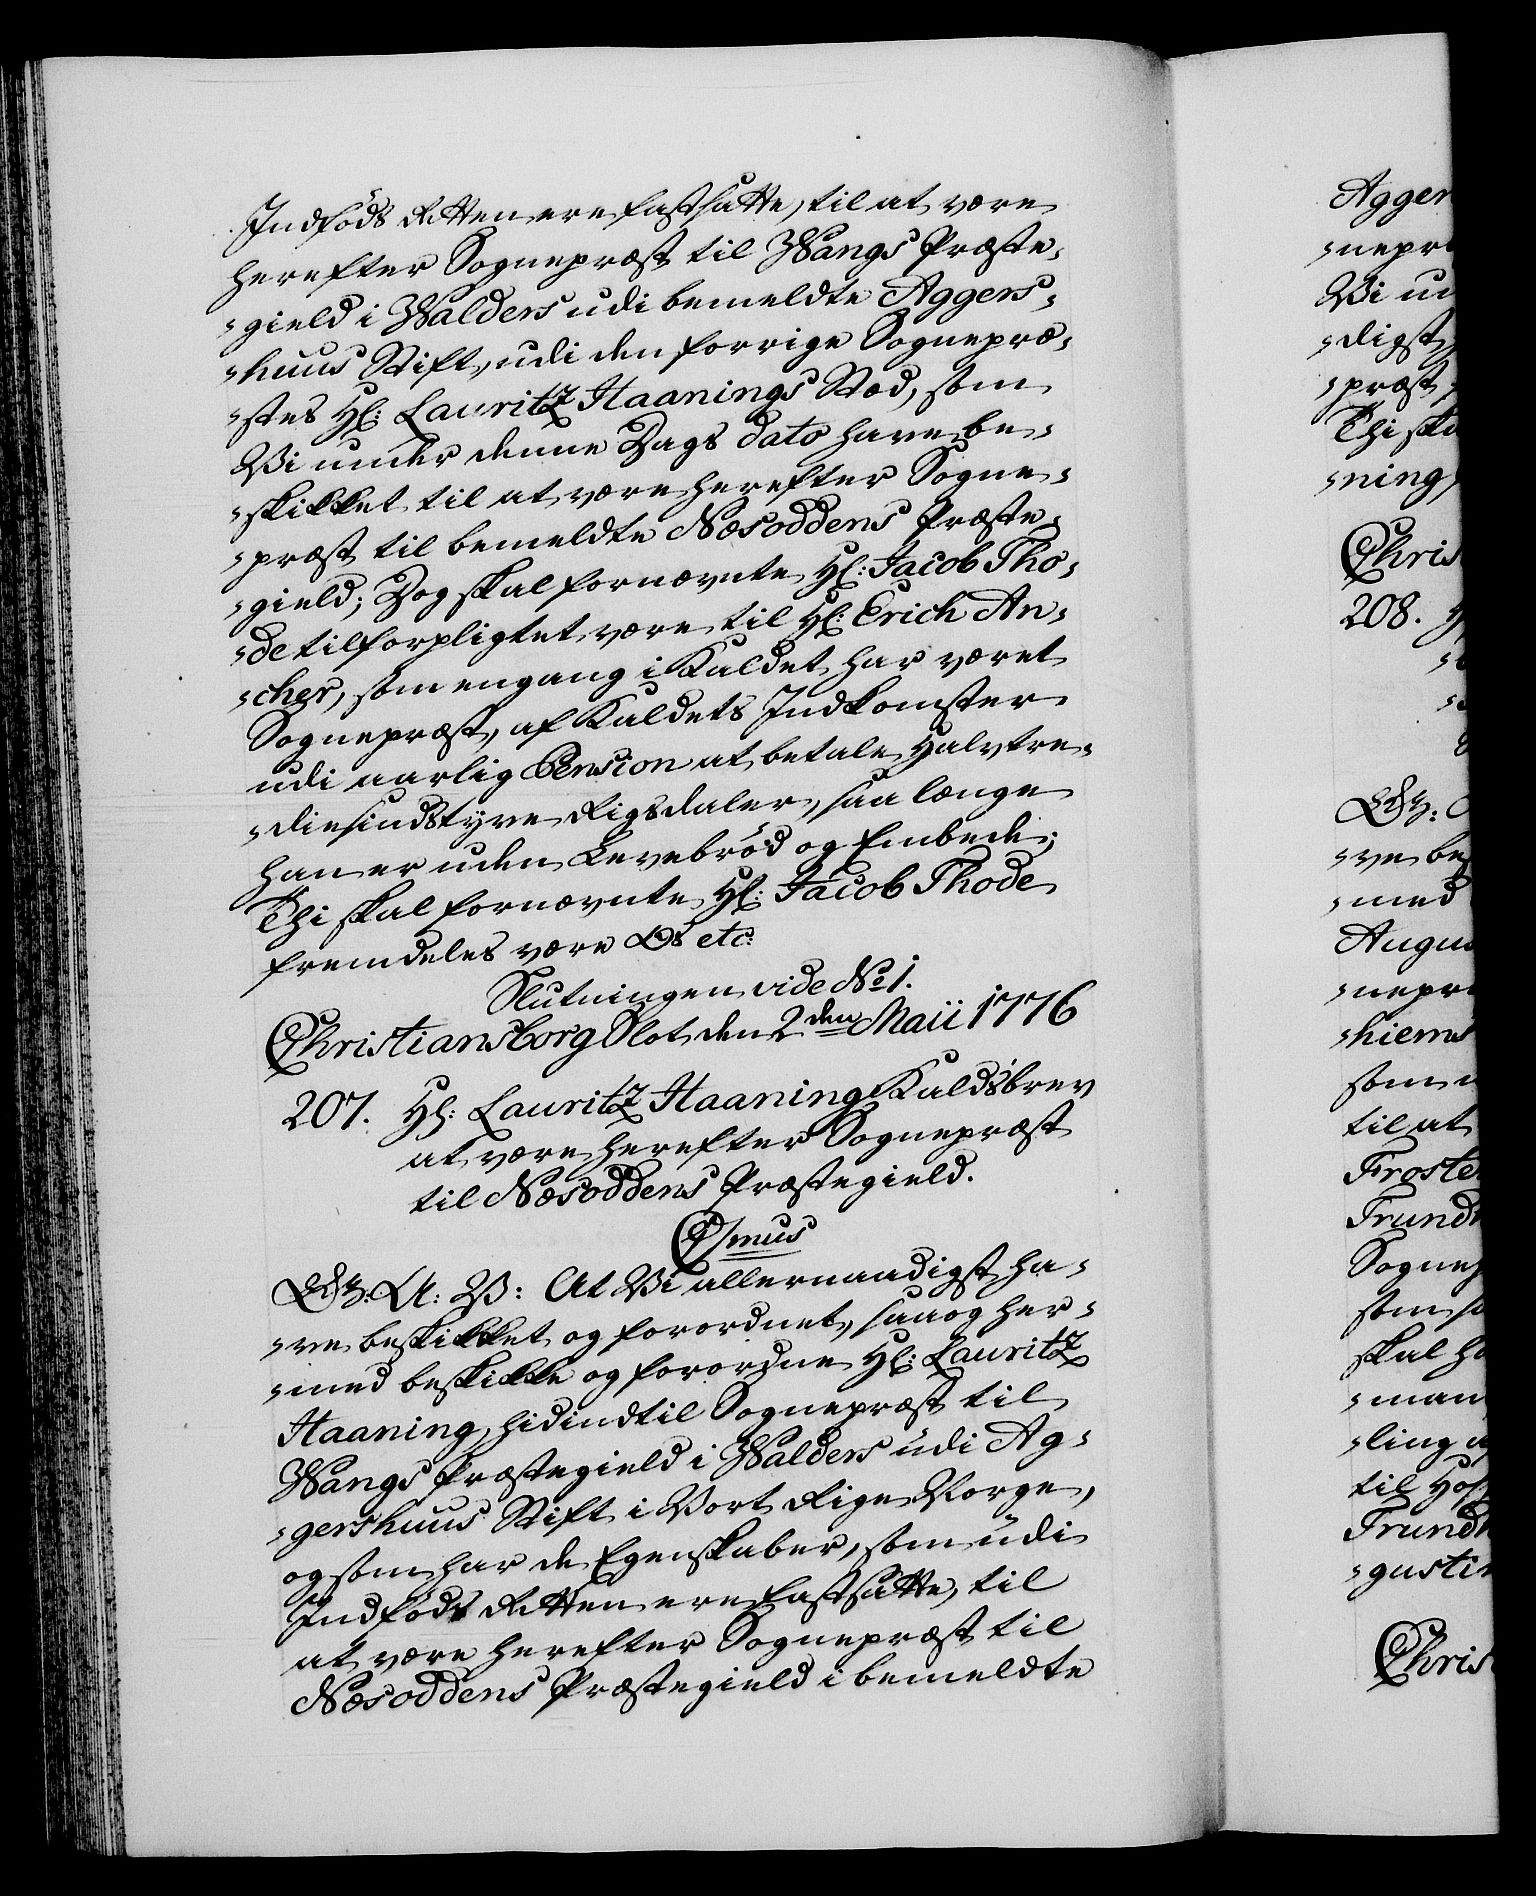 Indföds Retten ere fastsatte, til at være
herefter Sognepræst til Wangs Præste-
-gield i Walders udi bemeldte Aggers-
-huus Stift, udi den forrige Sognepræ-
-stes Hr: Lauritz Haanings Stæd, som
Vi under denne Dags dato have be-
-skikket til at være herefter Sogne-
-præst til bemeldte Næsoddens Præste-
-gield; Dog skal fornævnte Hr: Jacob Tho-
-de tilforpligtet være til Hr: Erich An-
-cher, som engang i Kaldet har været
Sognepræst, af Kaldets Indkomster
udi aarlig Pension at betale Halvtre-
-diesindstyve Rigsdaler, saa længe
han er uden Levebröd og Embede;
Thi skal fornævnte Hr: Jacob Thode
fremdeles være Os etc:
Slutningen vide No 1.
Christiansborg Slot den 2den Maii 1776
207. Hr: Lauritz Haaning Kaldsbrev
at være herefter Sognepræst
til Næsoddens Præstegield.
C7mus
G: A: V: At Vi allernaadigst ha-
-ve beskikket og forordnet, saa og her-
-med beskikke og forordne Hr: Lauritz
Haaning, hidindtil Sognepræst til
Wangs Præstegield i Walders udi Ag-
-gershuus Stift i Vort Rige Norge,
og som har de Egenskaber, som udi
Indföds Retten ere fastsatte, til
at være herefter Sognepræst til
Næsoddens Præstegield i bemeldte
Agger
-nepr
Vi u
-digst
-præst
Thi ska
-ning
Chris
208. H
-ve be
-med
Augu
-nepr
-hiems
som
til at
Froste
Trund
Sognep
som s
skal h
-man
-ling
til Hos
Trund
-gusti
Christ